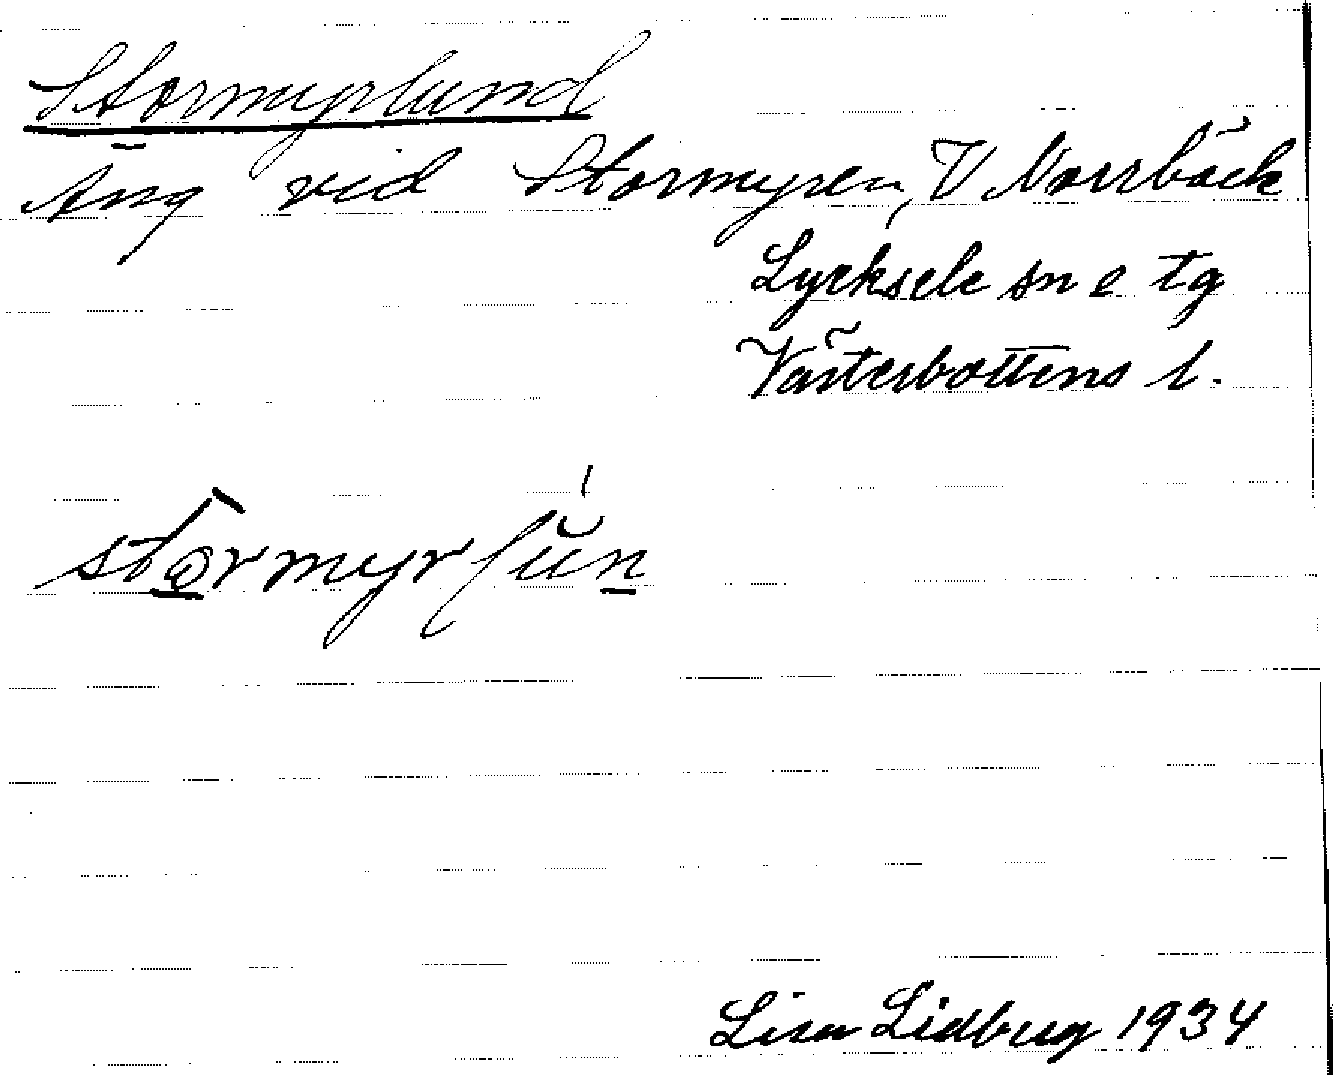 Stormyrlund
Äng vid Stormyren, V Norrbäck
Lycksele sn o tg
Västerbottens l.
stormyrlŭn
Lisa Lidberg 1934